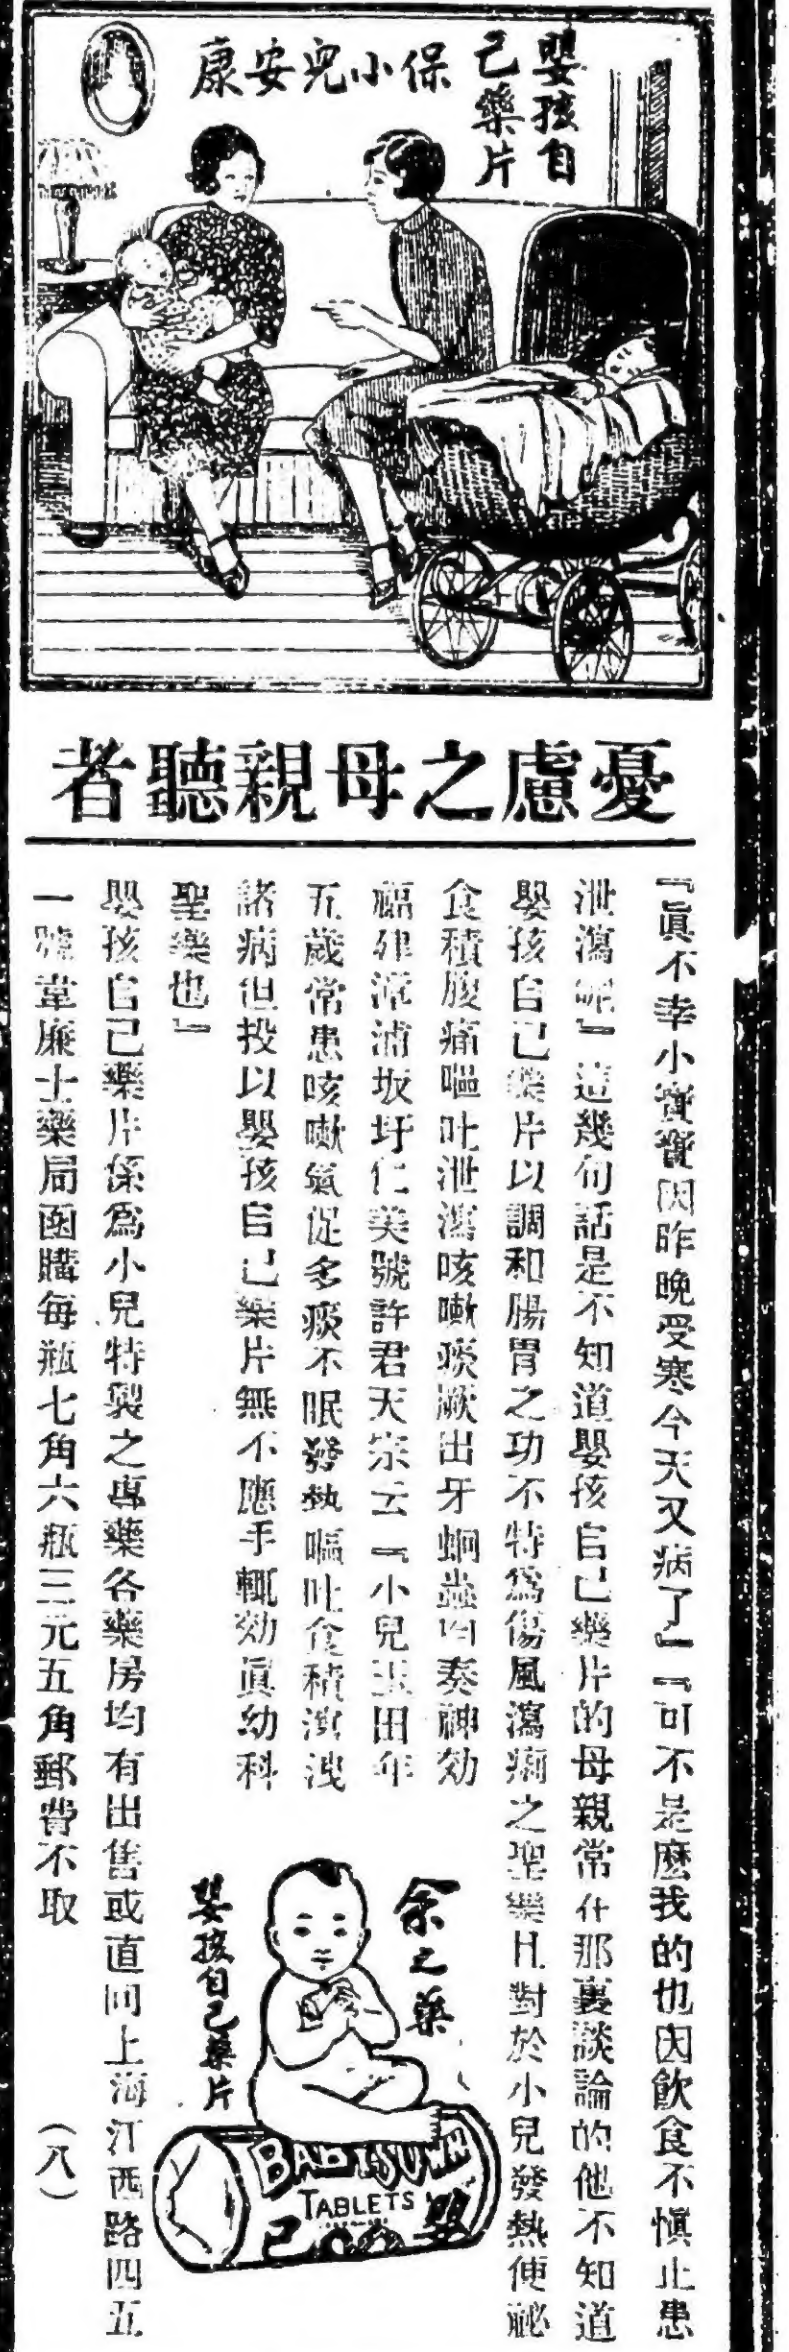 嬰孩自
己藥片
保小兒安康
憂慮之母親聽者
『眞不幸小寶寶因昨晚受寒今天又病了』『可不是麼我的也因飲食不愼止患
泄瀉呢』這幾句話是不知道嬰孩自己藥片的母親常在那裏談論的他不知道
嬰孩自己藥片以調和腸胃之功不特爲傷風瀉痢之聖藥且對於小兒發熱便祕
食積腹痛嘔吐泄瀉咳嗽痰厥出牙蛔蟲均奏神効
福建漳浦坂圩仁美號許君天宗云『小兒玉田年
五歲常患咳嗽氣促多痰不眠發熱嘔吐食積瀉洩
諸病但投以嬰孩自己藥片無不應手輒効眞幼科
聖藥也』
嬰孩自己藥片係爲小兒特製之專藥各藥房均有出售或直向上海江西路四五
一號韋廉士藥局函購每瓶七角六瓶三元五角郵費不取
(八)
余之藥
嬰孩自己藥片
TABLETS